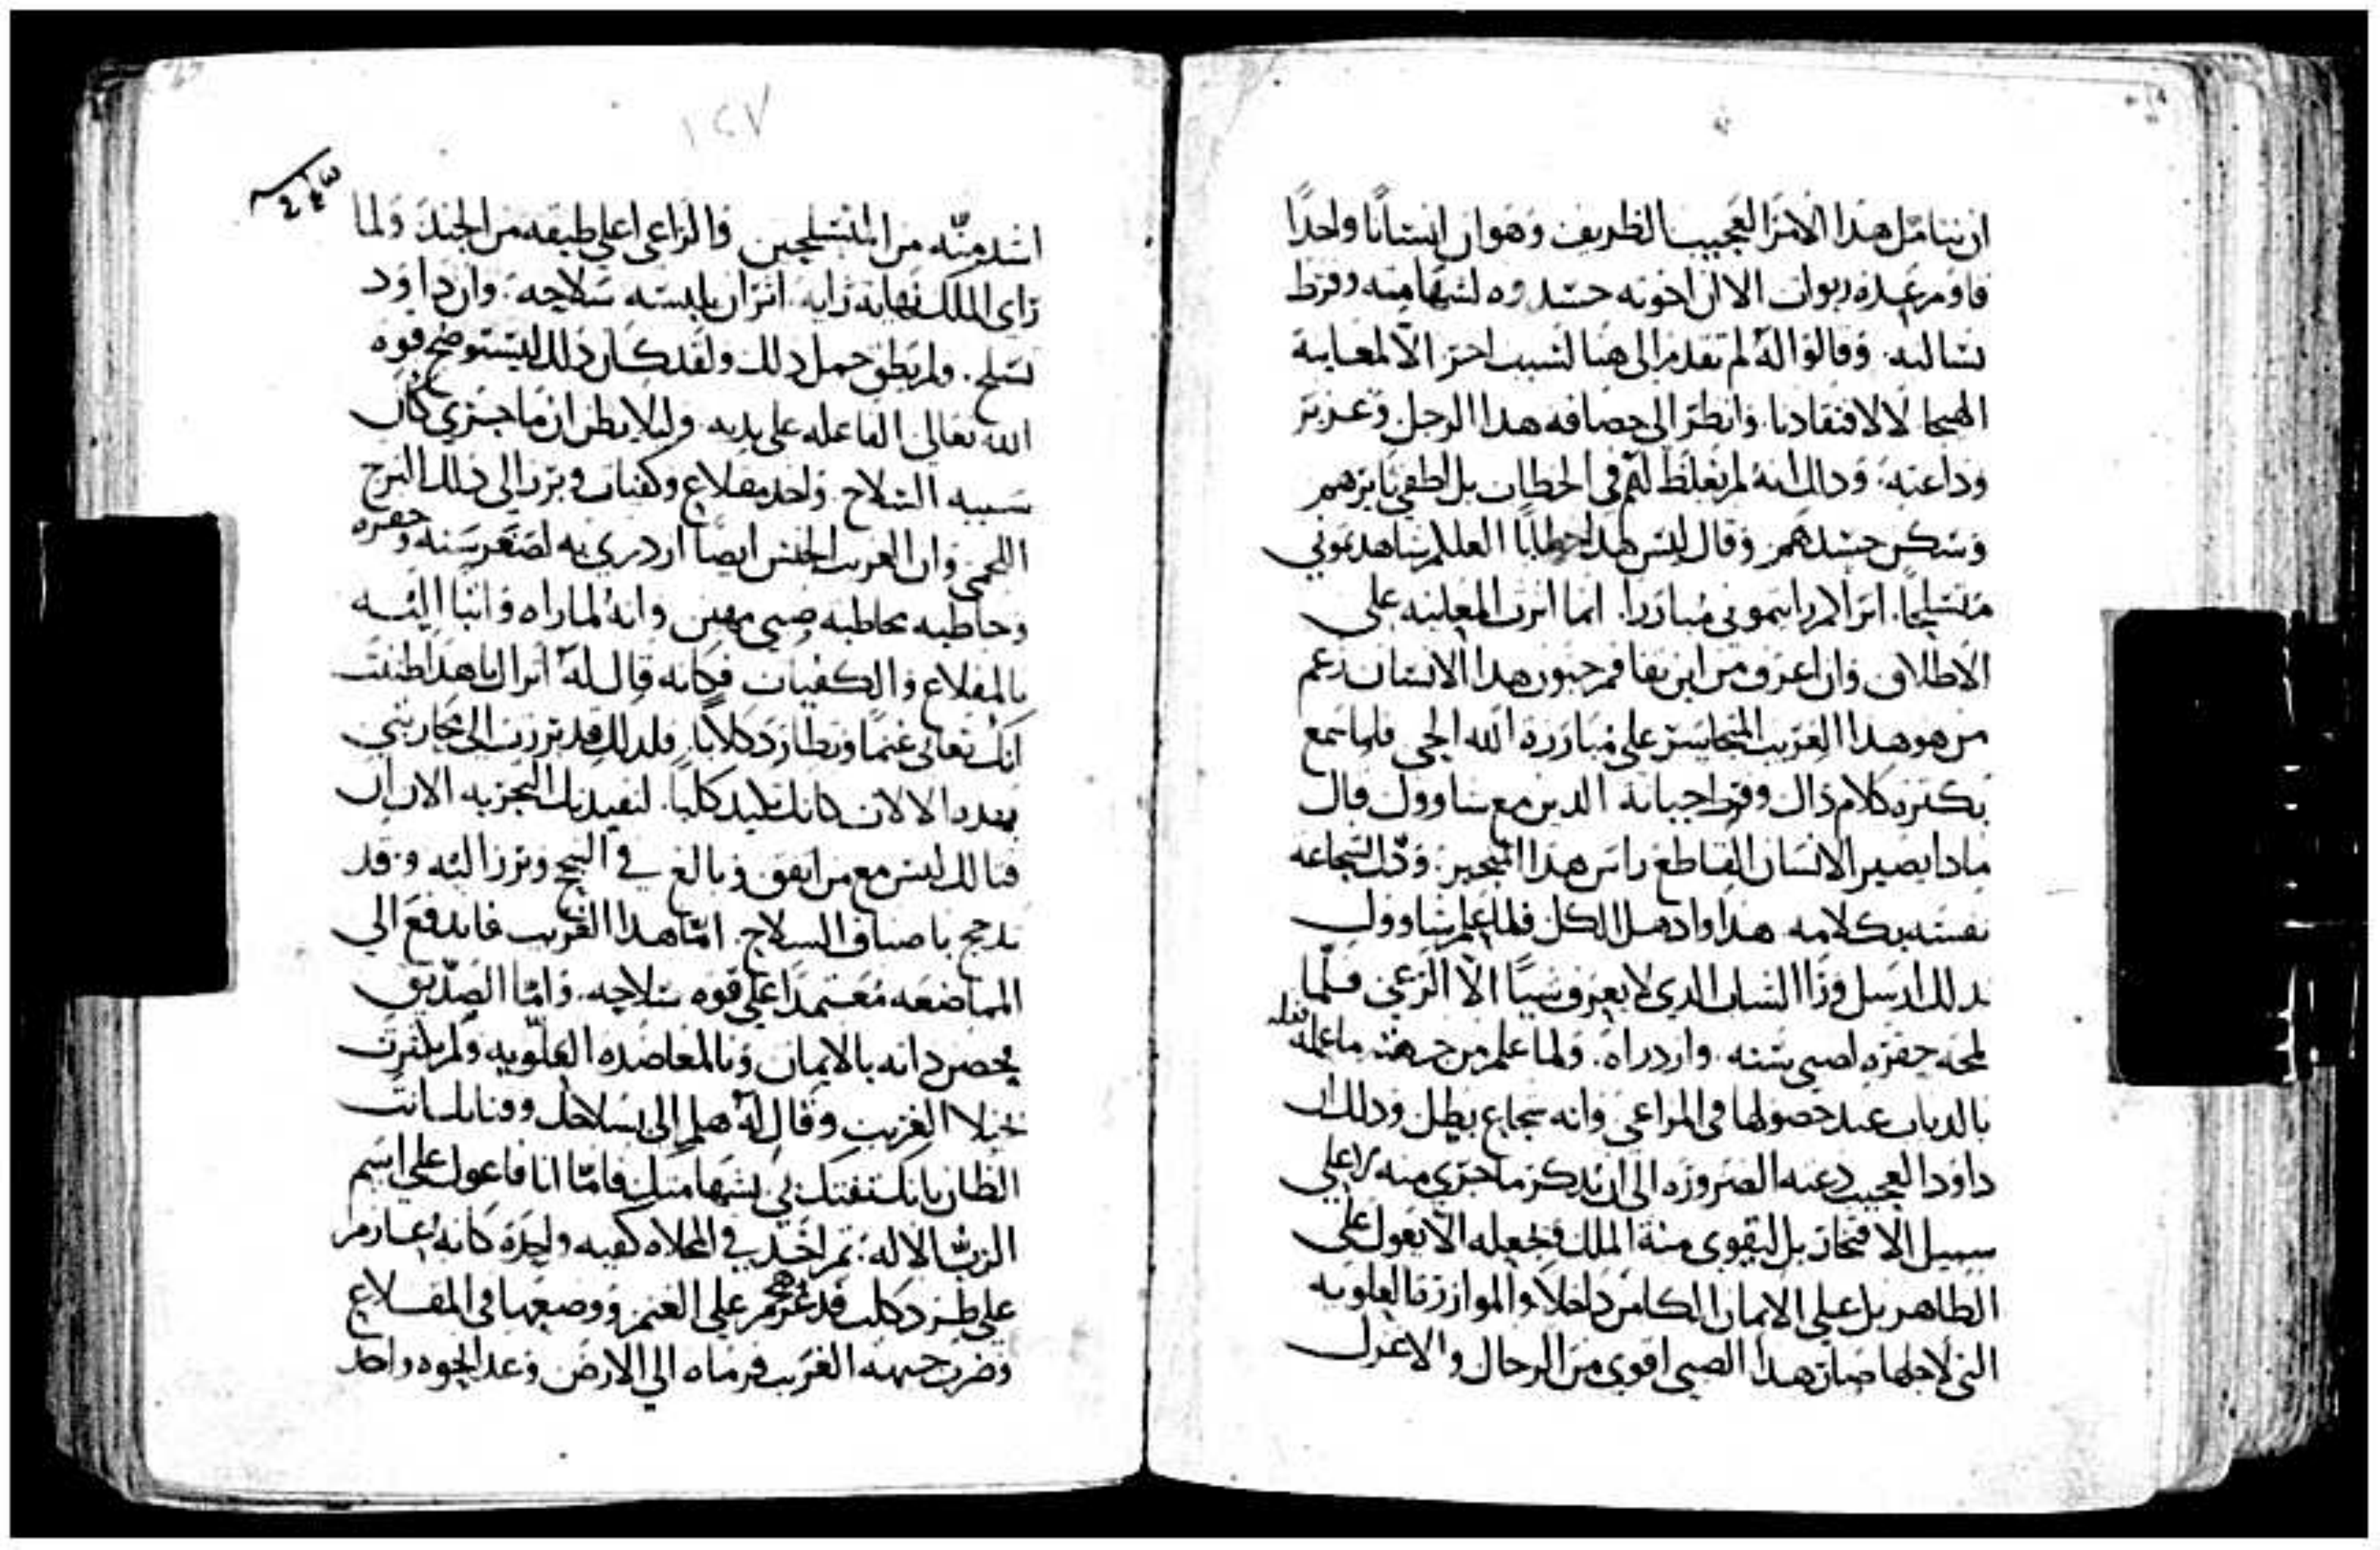 ان نتامل هدا الامر العجيب الظريف وهو ان انسانا واحدا
قاوم عدة ربوات الا ان اخوته حسدوه لشهامته وفرط
بسالته. وقالوا له لم تقدم الى هنا لسبب اخر الا لمعاينة
الهيجا لا لافتقادنا. وانظر الى حصافه هدا الرجل وغزير
وداعته. وداك انه لم يغلظ لهم في الخطاب بل اطفي نايرهم
وسكن حسدهم وقال ليس لهدا خطابا العلكم شاهدتموني
متسلحا. اتراكم رايتموني مبارزا. انما اثرت المعاينه على
الاطلاق وان اعرف من اين تفاقم جنون هدا الانسان زعم
من هو هدا الغريب المتجاسر على مبارزة الله الحي فلما سمع
تكثره كلام داك وفرط جبانة الدين مع شاوول قال
مادا يصير الانسان القاطع راس هدا المتجبر. ودل شجاعه
نفسه بكلامه هدا وادهل الكل فلما علم شاوول
بدلك ارسل ورا الشاب الدي لا يعرف شيا الا الرعي فلما
لمحه حقره لصبى سنه. وازدراه. ولما علم من جهته ما عمله فعله
بالدياب عند حصولها في المراعي وانه شجاع بطل ودلك ان
داود العجيب دعته الضروره الى ان يدكر ما جرى منه لا على
سبيل الافتخار بل ليقوى منة الملك ويجعله الا يعول على
الظاهر بل على الايمان الكامن داخلا والموازرة العلويه
التي لاجلها صار هدا الصبي اقوى من الرجال والاعزل
١٤٧
اشد منه من المتسلحين والراعي اعلى طبقه من الجند ولما
راى الملك نهاية رايه. اثر ان يلبسه سلاحه. وان داود
تسلح. ولم يطق حمل دلك ولقد كان دلك ليستوضح قوه
الله تعالى الفاعله على يديه وليلا يظن ان ما جرى كان
سببه السلاح. واخد مقلاع وكفيات وبرز الى دلك البرج
اللحمي وان الغريب الجنس ايضا ازدرى به لصغر سنه وحقره
وخاطبه مخاطبه صبي مهين وانه لما راه واتيا اليه
بالمقلاع والكفيات فكانه قال له اتراك يا هدا ظننت
انك تعاني غنما وتطارد كلابا. فلدلك قد برزت الى محاربتي
بهده الالات كانك تصيد كلبا. لتفيدنك التجربه الان ان
قتالك ليس مع من اتفق وبالغ في التبجح وبرز اليه وقد
تدجج باصناف السلاح. اما هدا الغريب فاندفع الى
المماصعه معتمدا على قوه سلاحه. واما الصديق
فحصن داته بالايمان وبالمعاضده العلويه ولم يكترث
بخيلا الغريب وقال له هلم الى بسلاحك وقنا بلسانت
الظان بانك تفتك بي بشهامتك فاما انا فاعول على اسم
الرب الاله. تم اخد في المخلاه كفيه واحدة كانه عازم
على طرد كلب قد هجم على الغنم ووضعها في المقلاع
وضرب جبهة الغريب فرماه الى الارض وعدا نحوه واخد